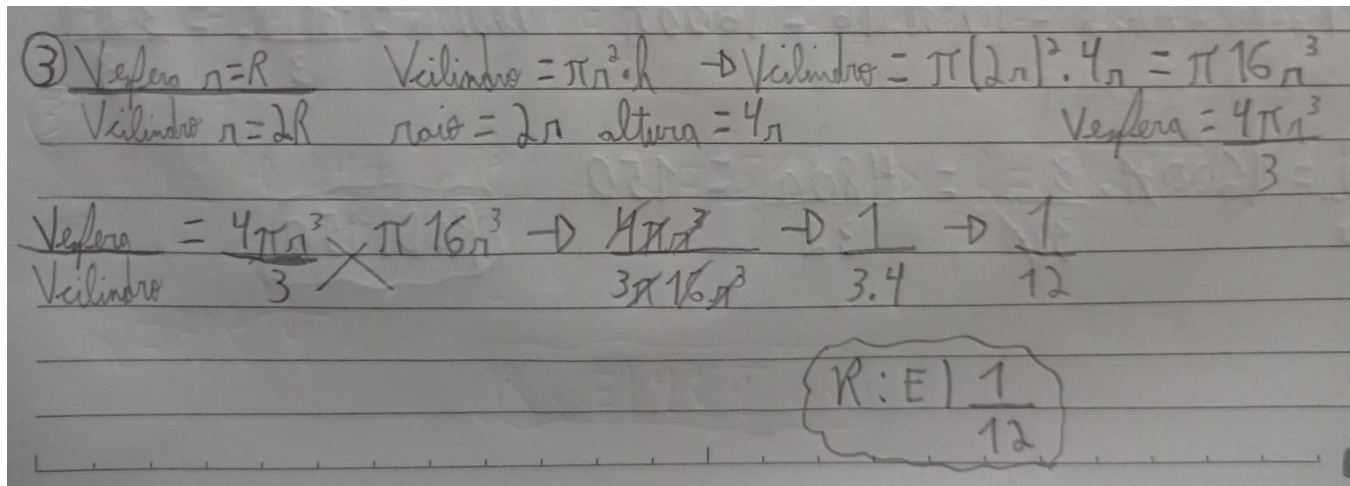 ③ Vesfera r=R Vcilindro = πr²·h → Vcilindro = π(2r)².4r = π16r³
Vcilindro r=2R raio = 2r altura = 4r Vesfera = 4πr³/3
Vesfera/Vcilindro = 4πr³/3 π16r³ → 4πr³/3π16r³ → 1/3.4 → 1/12
R: E) 1/12